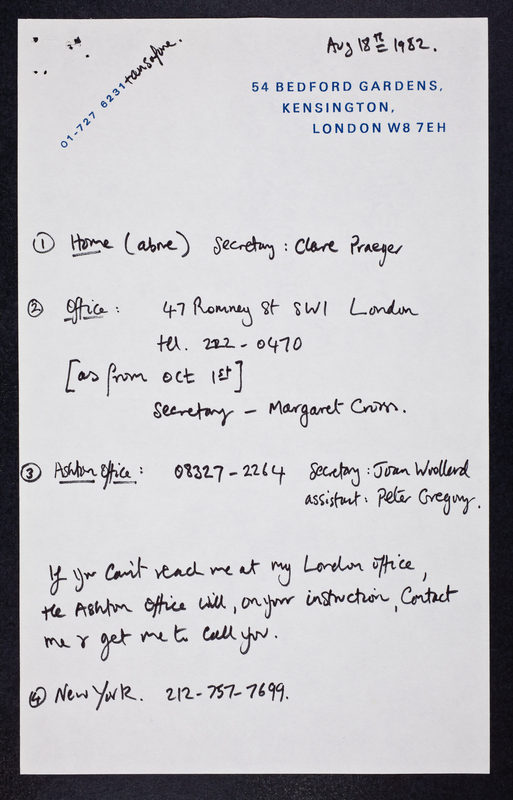 Aug 18th 1982.
01-727 6231
54 BEDFORD GARDENS,
KENSINGTON,
LONDON W8 7EH
① Home (above) Secretary: Clare Praeger
② Office: 47 Romney St SW1 London
tel. 222-0470
[as from Oct 1st]
Secretary – Margaret Cross.
③ Ashton Office: 08327-2264 Secretary: Joan Woollard
assistant: Peter Gregory.
If you can't reach me at my London office,
the Ashton Office will, on your instruction, contact
me & get me to call you.
④ New York. 212-757-7699.